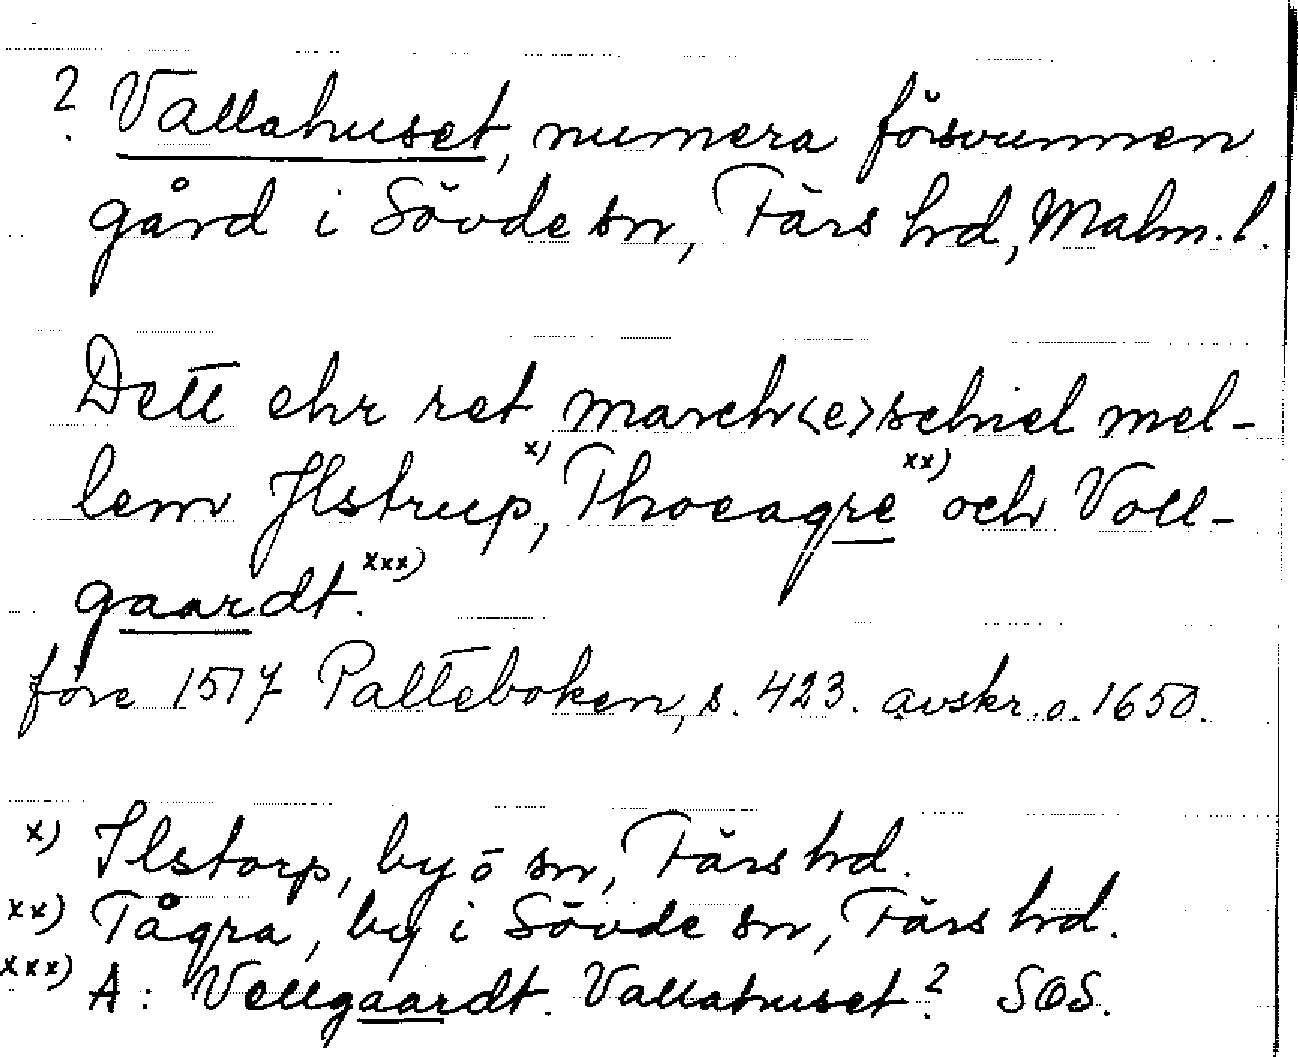 ? Vallahuset, numera försvunnen
gård i Sövde sn, Färs hrd, Malm. l.
Dett ehr ret march<e>schiel mel-
lem Jlstrup,x) Thoeagrexx) och Voll-
gaardt.xxx)
före 1517 Palteboken, s. 423. avskr. o. 1650.
x) Ilstorp, by o sn, Färs hrd.
xx) Tågra, by i Sövde sn, Färs hrd.
xxx) A: Vellgaardt. Vallahuset? SOS.